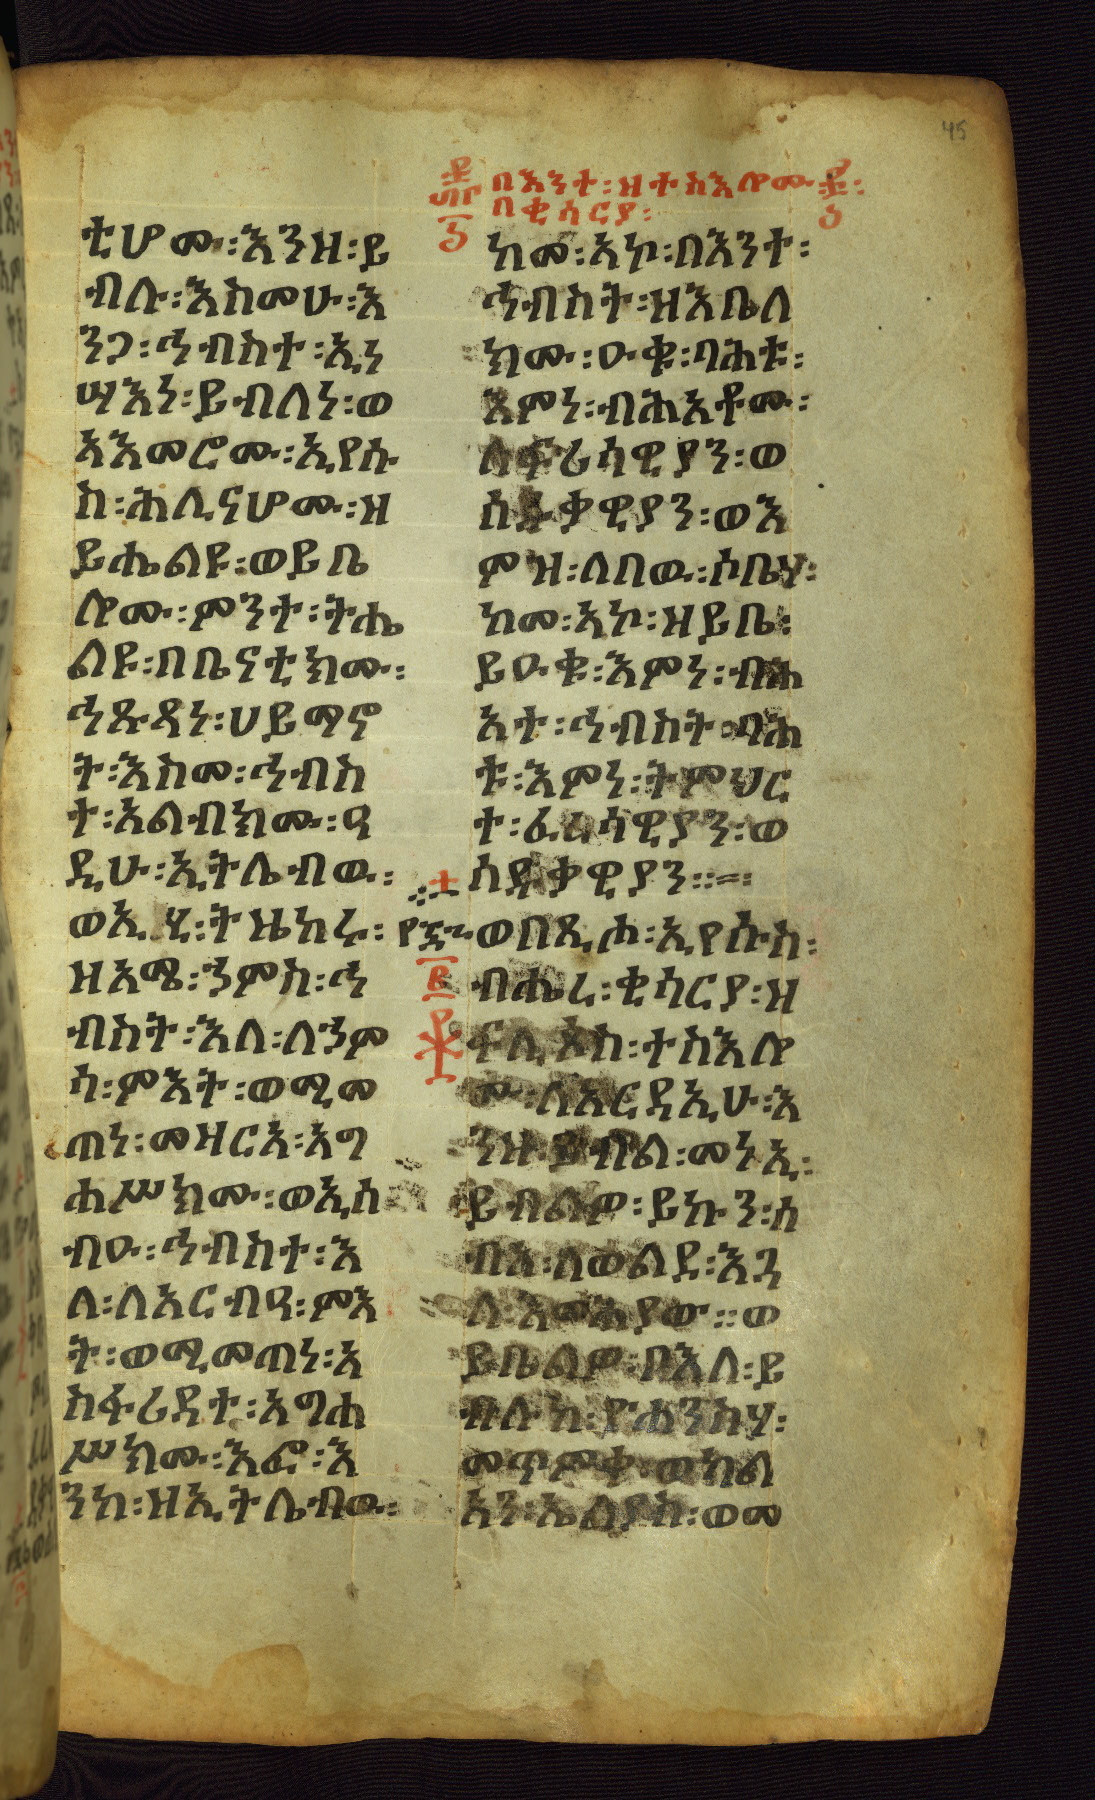 በእንተ ፡ ዘተስእሎሙ ፡
በቂሳርያ ፡
ቲሆሙ ፡ እንዘ ፡ ይ
ብሉ ፡ እስመሁ ፡ እ
ንጋ ፡ ኅብስተ ፡ ኢነ
ሣእነ ፡ ይብለነ ፡ ወ
ኣእመሮሙ ፡ ኢየሱ
ስ ፡ ሕሊናሆሙ ፡ ዘ
ይሔልዩ ፡ ወይቤ
ሎሙ ፡ ምንተ ፡ ትሔ
ልዩ ፡ በቤናቲክሙ ፡
ኅጹጻነ ፡ ሀይማኖ
ት ፡ እስመ ፡ ኅብስ
ተ ፡ አልብክሙ ፡ ዓ
ዲሁ ፡ ኢትሌብዉ ፡
ወኢሂ ፡ ትዜከሩ ፡
ዘአሜ ፡ ኃምስ ፡ ኅ
ብስት ፡ እለ ፡ ለኃም
ሳ ፡ ምእት ፡ ወሚመ
ጠነ ፡ መዝርአ ፡ አግ
ሐሥክሙ ፡ ወኢስ
ብዑ ፡ ኅብስተ ፡ እ
ለ ፡ ለአርብዓ ፡ ምእ
ት ፡ ወሚመጠነ ፡ አ
ስፋሪዳተ ፡ አግሐ
ሥክሙ ፡ እፎ ፡ እ
ንከ ፡ ዘኢትሌብዉ ፡
ከመ ፡ ኣኮ ፡ በእንተ ፡
ኅብስት ፡ ዘእቤለ
ክሙ ፡ ዑቁ ፡ ባሕቱ ፡
እምነ ፡ ብሕአቶሙ ፡
ለፍሪሳዊያን ፡ ወ
ሰዱቃዊያን ፡ ወእ
ምዝ ፡ ለበዉ ፡ ሶቤሃ ፡
ከመ ፡ ኣኮ ፡ ዘይቤ ፡
ይዑቁ ፡ እምነ ፡ ብሕ
አተ ፡ ኅብስት ፡ ባሕ
ቱ ፡ እምነ ፡ ትምህር
ተ ፡ ፈሪሳዊያን ፡ ወ
ሰዱቃዊያን ።
ወበጺሖ ፡ ኢየሱስ ፡
ብሔረ ፡ ቂሳርያ ፡ ዘ
ፍሊጶስ ፡ ተስእሎ
ሙ ፡ ለአርዳኢሁ ፡ እ
ንዘ ፡ ይብል ፡ መነ ኢ ፡
ይብልዎ ፡ ይኩን ፡ ሰ
ብእ ፡ ለወልደ ፡ እጓ
ለ ፡ እመሕያው ። ወ
ይቤልዎ ፡ በእለ ፡ ይ
ብሉከ ፡ ዮሐንስሃ ፡
መጥምቀ ፡ ወክል
አን ፡ ኤልያስ ፡ ወመ